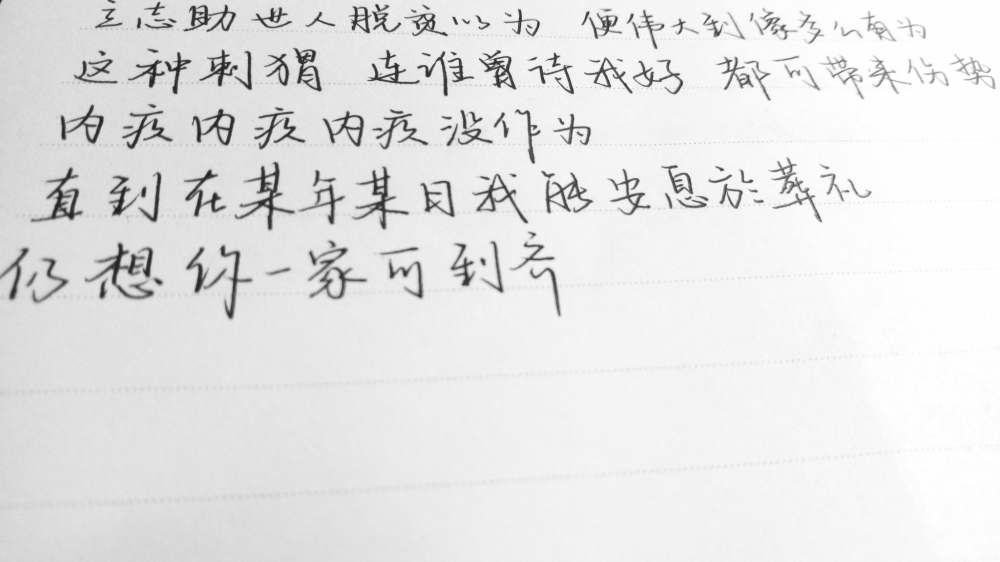 立志助世人脱贫以为 便伟大到像多么有为
这种刺猬 连谁曾待我好 都可带来伤势
内疚内疚内疚没作为
直到在某年某日我能安息於葬礼
仍想你一家可到齐